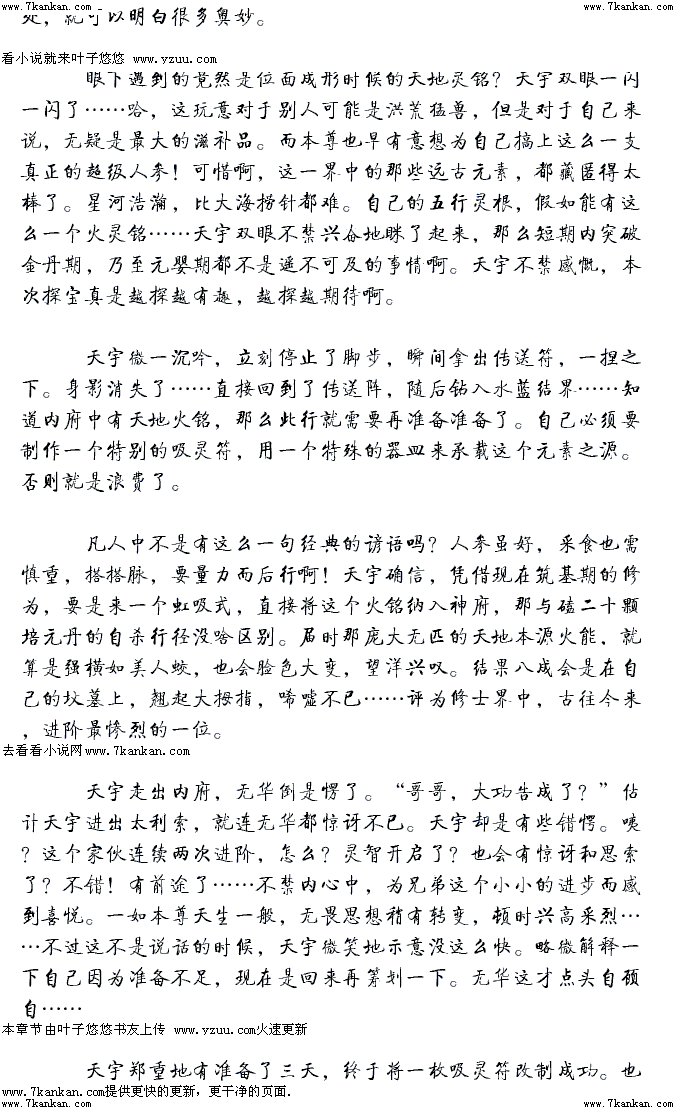 www.7kankan.com www.7kankan.com
处，就可以明白很多奥妙。
看小说就来叶子悠悠 www.yzuu.com
眼下遇到的竟然是位面成形时候的天地灵铭？天宇双眼一闪
一闪了……哈，这玩意对于别人可能是洪荒猛兽，但是对于自己来
说，无疑是最大的滋补品。而本尊也早有意想为自己搞上这么一支
真正的超级人参！可惜啊，这一界中的那些远古元素，都藏匿得太
棒了。星河浩瀚，比大海捞针都难。自己的五行灵根，假如能有这
么一个火灵铭……天宇双眼不禁兴奋地眯了起来，那么短期内突破
金丹期，乃至元婴期都不是遥不可及的事情啊。天宇不禁感慨，本
次探宝真是越探越有趣，越探越期待啊。
天宇微一沉吟，立刻停止了脚步，瞬间拿出传送符，一捏之
下。身影消失了……直接回到了传送阵，随后钻入水蓝结界……知
道内府中有天地火铭，那么此行就需要再准备准备了。自己必须要
制作一个特别的吸灵符，用一个特殊的器皿来承载这个元素之源。
否则就是浪费了。
凡人中不是有这么一句经典的谚语吗？人参虽好，采食也需
慎重，搭搭脉，要量力而后行啊！天宇确信，凭借现在筑基期的修
为，要是来一个虹吸式，直接将这个火铭纳入神府，那与磕二十颗
培元丹的自杀行径没啥区别。届时那庞大无匹的天地本源火能，就
算是强横如美人蛟，也会脸色大变，望洋兴叹。结果八成会是在自
己的坟墓上，翘起大拇指，唏嘘不已……评为修士界中，古往今来
，进阶最惨烈的一位。
去看看小说网www.7kankan.com
天宇走出内府，无华倒是愣了。“哥哥，大功告成了？”估
计天宇进出太利索，就连无华都惊讶不已。天宇却是有些错愕。咦
？这个家伙连续两次进阶，怎么？灵智开启了？也会有惊讶和思索
了？不错！有前途了……不禁内心中，为兄弟这个小小的进步而感
到喜悦。一如本尊天生一般，无畏思想稍有转变，顿时兴高采烈…
…不过这不是说话的时候，天宇微笑地示意没这么快。略微解释一
下自己因为准备不足，现在是回来再筹划一下。无华这才点头自顾
自……
本章节由叶子悠悠书友上传 www.yzuu.com火速更新
天宇郑重地有准备了三天，终于将一枚吸灵符改制成功。也
www.7kankan.com提供更快的更新，更干净的页面.
www.7kankan.com www.7kankan.com